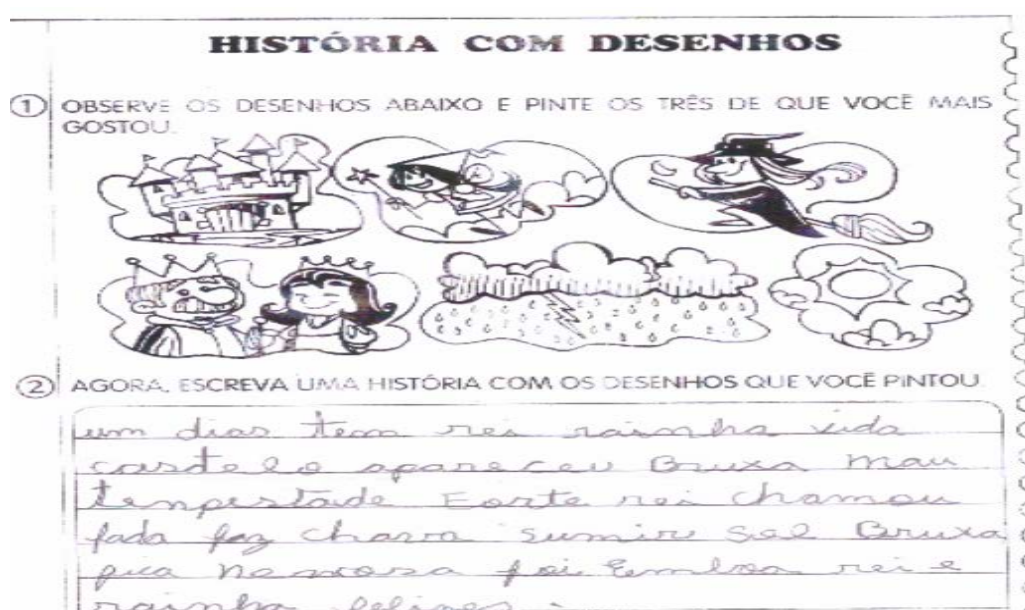 HISTÓRIA COM DESENHOS
1 OBSERVE OS DESENHOS ABAIXO E PINTE OS TRÊS DE QUE VOCÊ MAIS
GOSTOU.
2 AGORA, ESCREVA UMA HISTÓRIA COM OS DESENHOS QUE VOCÊ PINTOU.
um dias tem rei rainha vida
castelo apareceu Bruxa mau
tempestaide Eorte rei chamou
fada faz chava sumiu sol Bruxa
foi Embora rei e
rainha